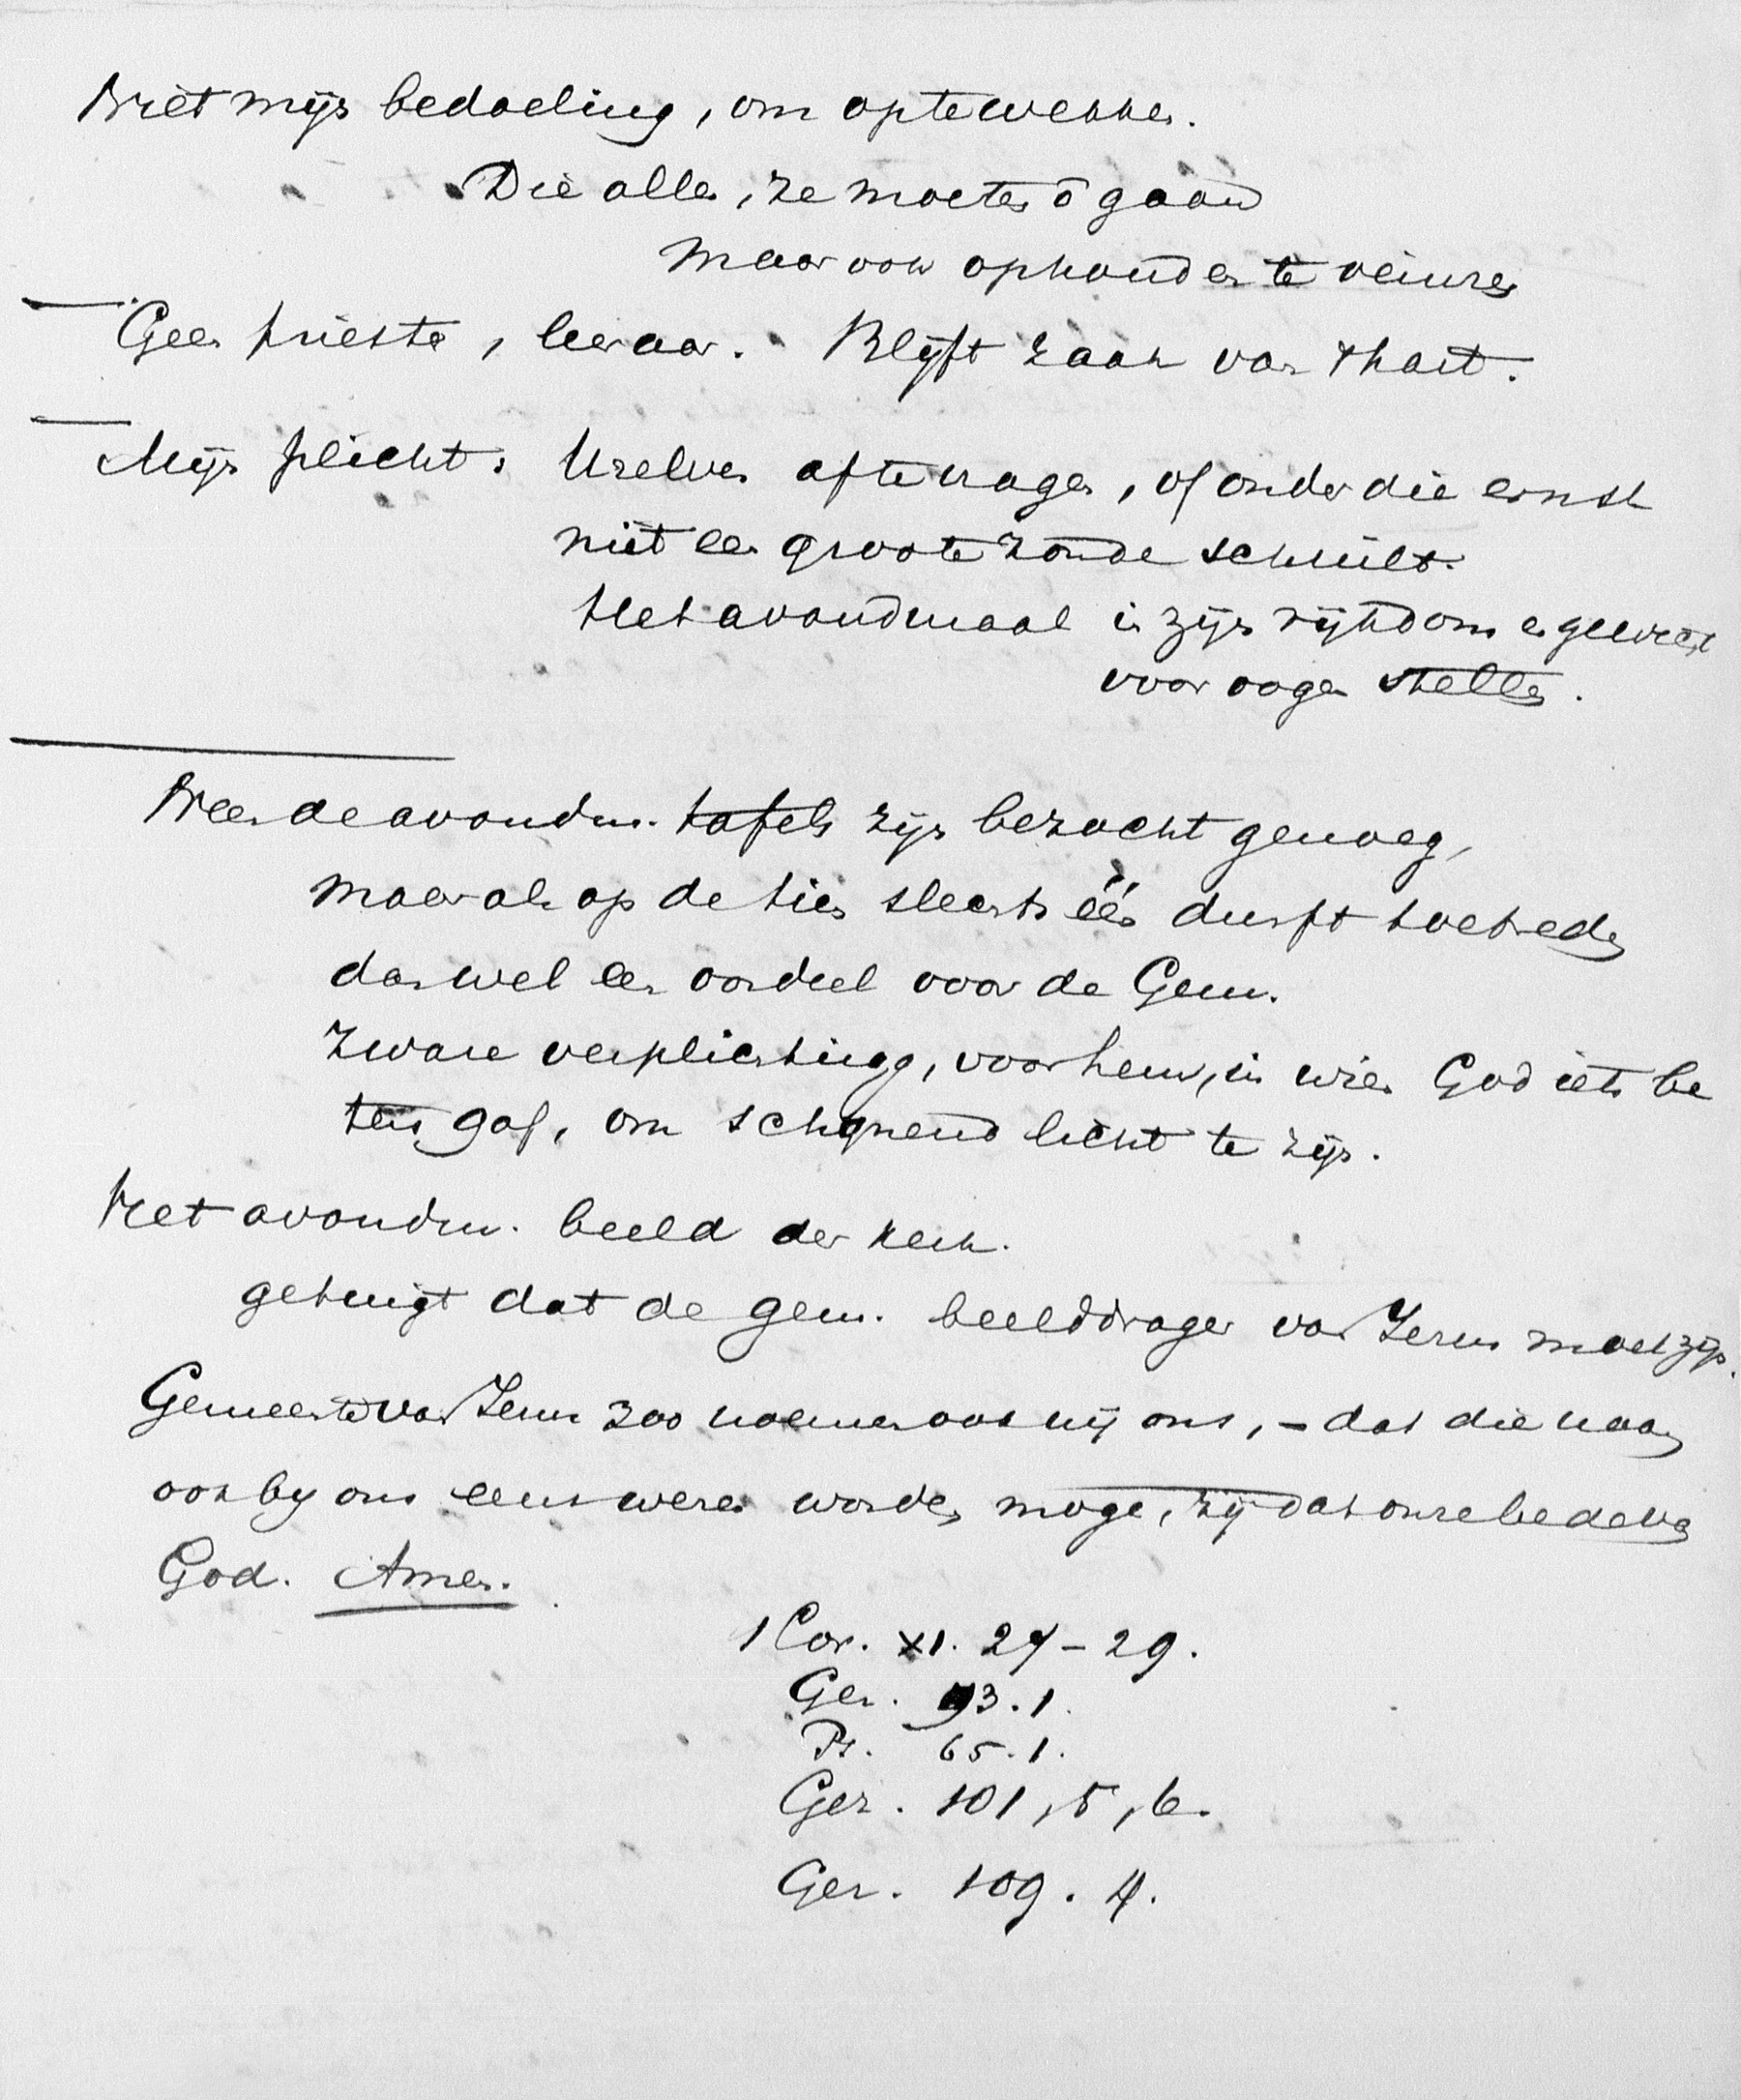 Niet mijn bedoeling, om optewekken.
Die allen, ze moeten ō gaan
maar ook ophouden te veinzen
Geen priester, leeraar. Blijft zaak van 't hart.
Mijn plicht: Uzelven aftevragen, of onder die ernst
niet een groote zonde schuilt.
Het avondmaal in zijn rijkdom en gewicht
voor oogen stellen.
Neen de avondm. tafels zijn bezocht genoeg,
maar als op de tien slechts één durft toetreden
dan wel een oordeel voor de Gem.
Zware verplichting, voor hem, in wien God iets be
ters gaf, om schijnend licht te zijn.
Het avondm. beeld der kerk.
getuigt dat de gem. beelddrager van Jezus moet zijn.
Gemeente van Jezus zoo noemen ook wij ons, – dat die naam
ook bij ons eens wezen worden moge, zij dat onze bede van
God. Amen.
1 Cor. XI. 27–29.
Gez. 93.1.
Ps. 65.1.
Gez. 101,5,6.
Gez. 109.4.